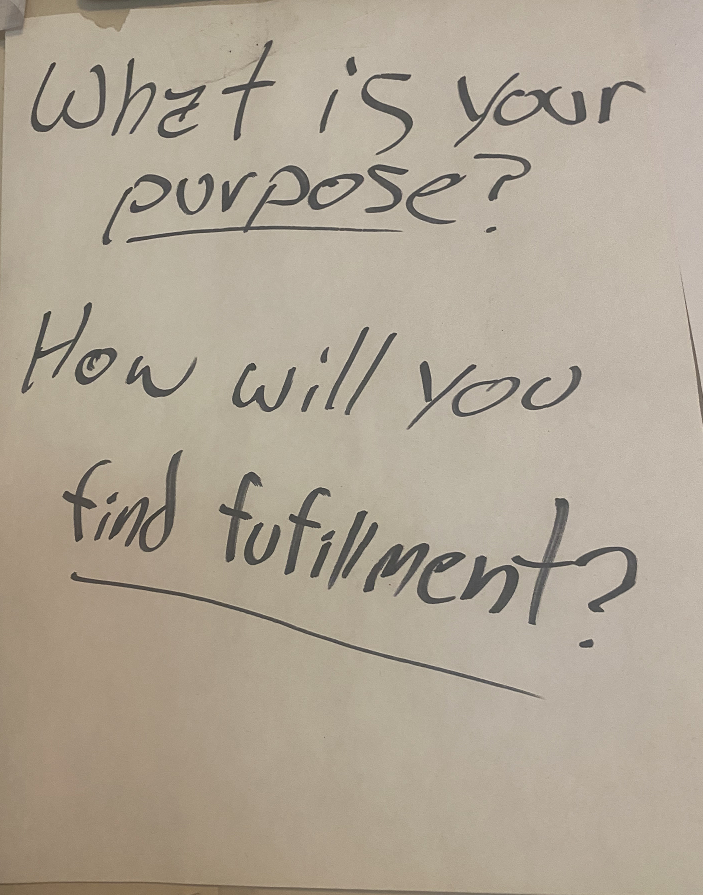 What is your
purpose?
How will you
find fufillment?